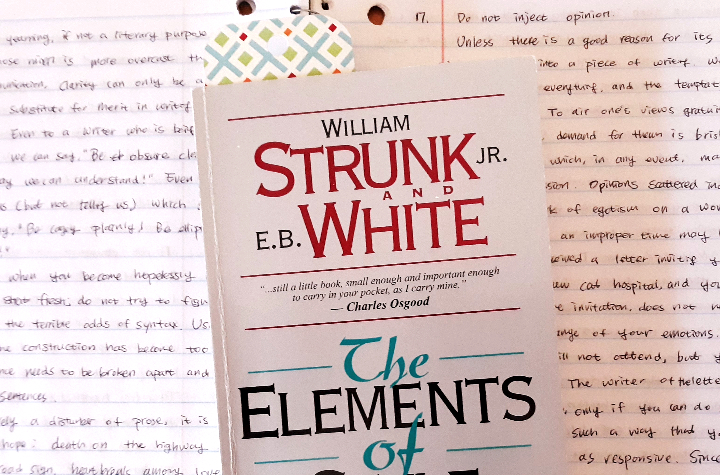 yearning, if not a literary purpose
mind is more overcast th
Clarity can only be a
substitute for merit in writing
Even to a writer who is being
we can say, "Be obscure cle
we can understand!" Even
(but not telling us) which
"Be cagy plainly! Be
when you become hopelessly
start fresh; do not try to figh
the terrible odds of syntax. Us
construction has become too
needs to be broken apart and
sentences.
a disturber of prose, it is
hope: death on the highway
road sign, heartbreak among love
WILLIAM
STRUNK JR.
AND
E.B. WHITE
"...still a little book, small enough and important enough
to carry in your pocket, as I carry mine."
— Charles Osgood
The
ELEMENTS
of
17. Do not inject opinion.
Unless there is a good reason for its
into a piece of writing. W
everything, and the temptat
To air one's views gratui
demand for them is bris
which, in any event, ma
Opinions scattered in
of egotism on a wo
an improper time may
a letter inviting y
cat hospital, and yo
invitation, does not
of your emotions.
not attend, but y
The writer of letter
only if you can do
such a way that yo
as responsive. Since